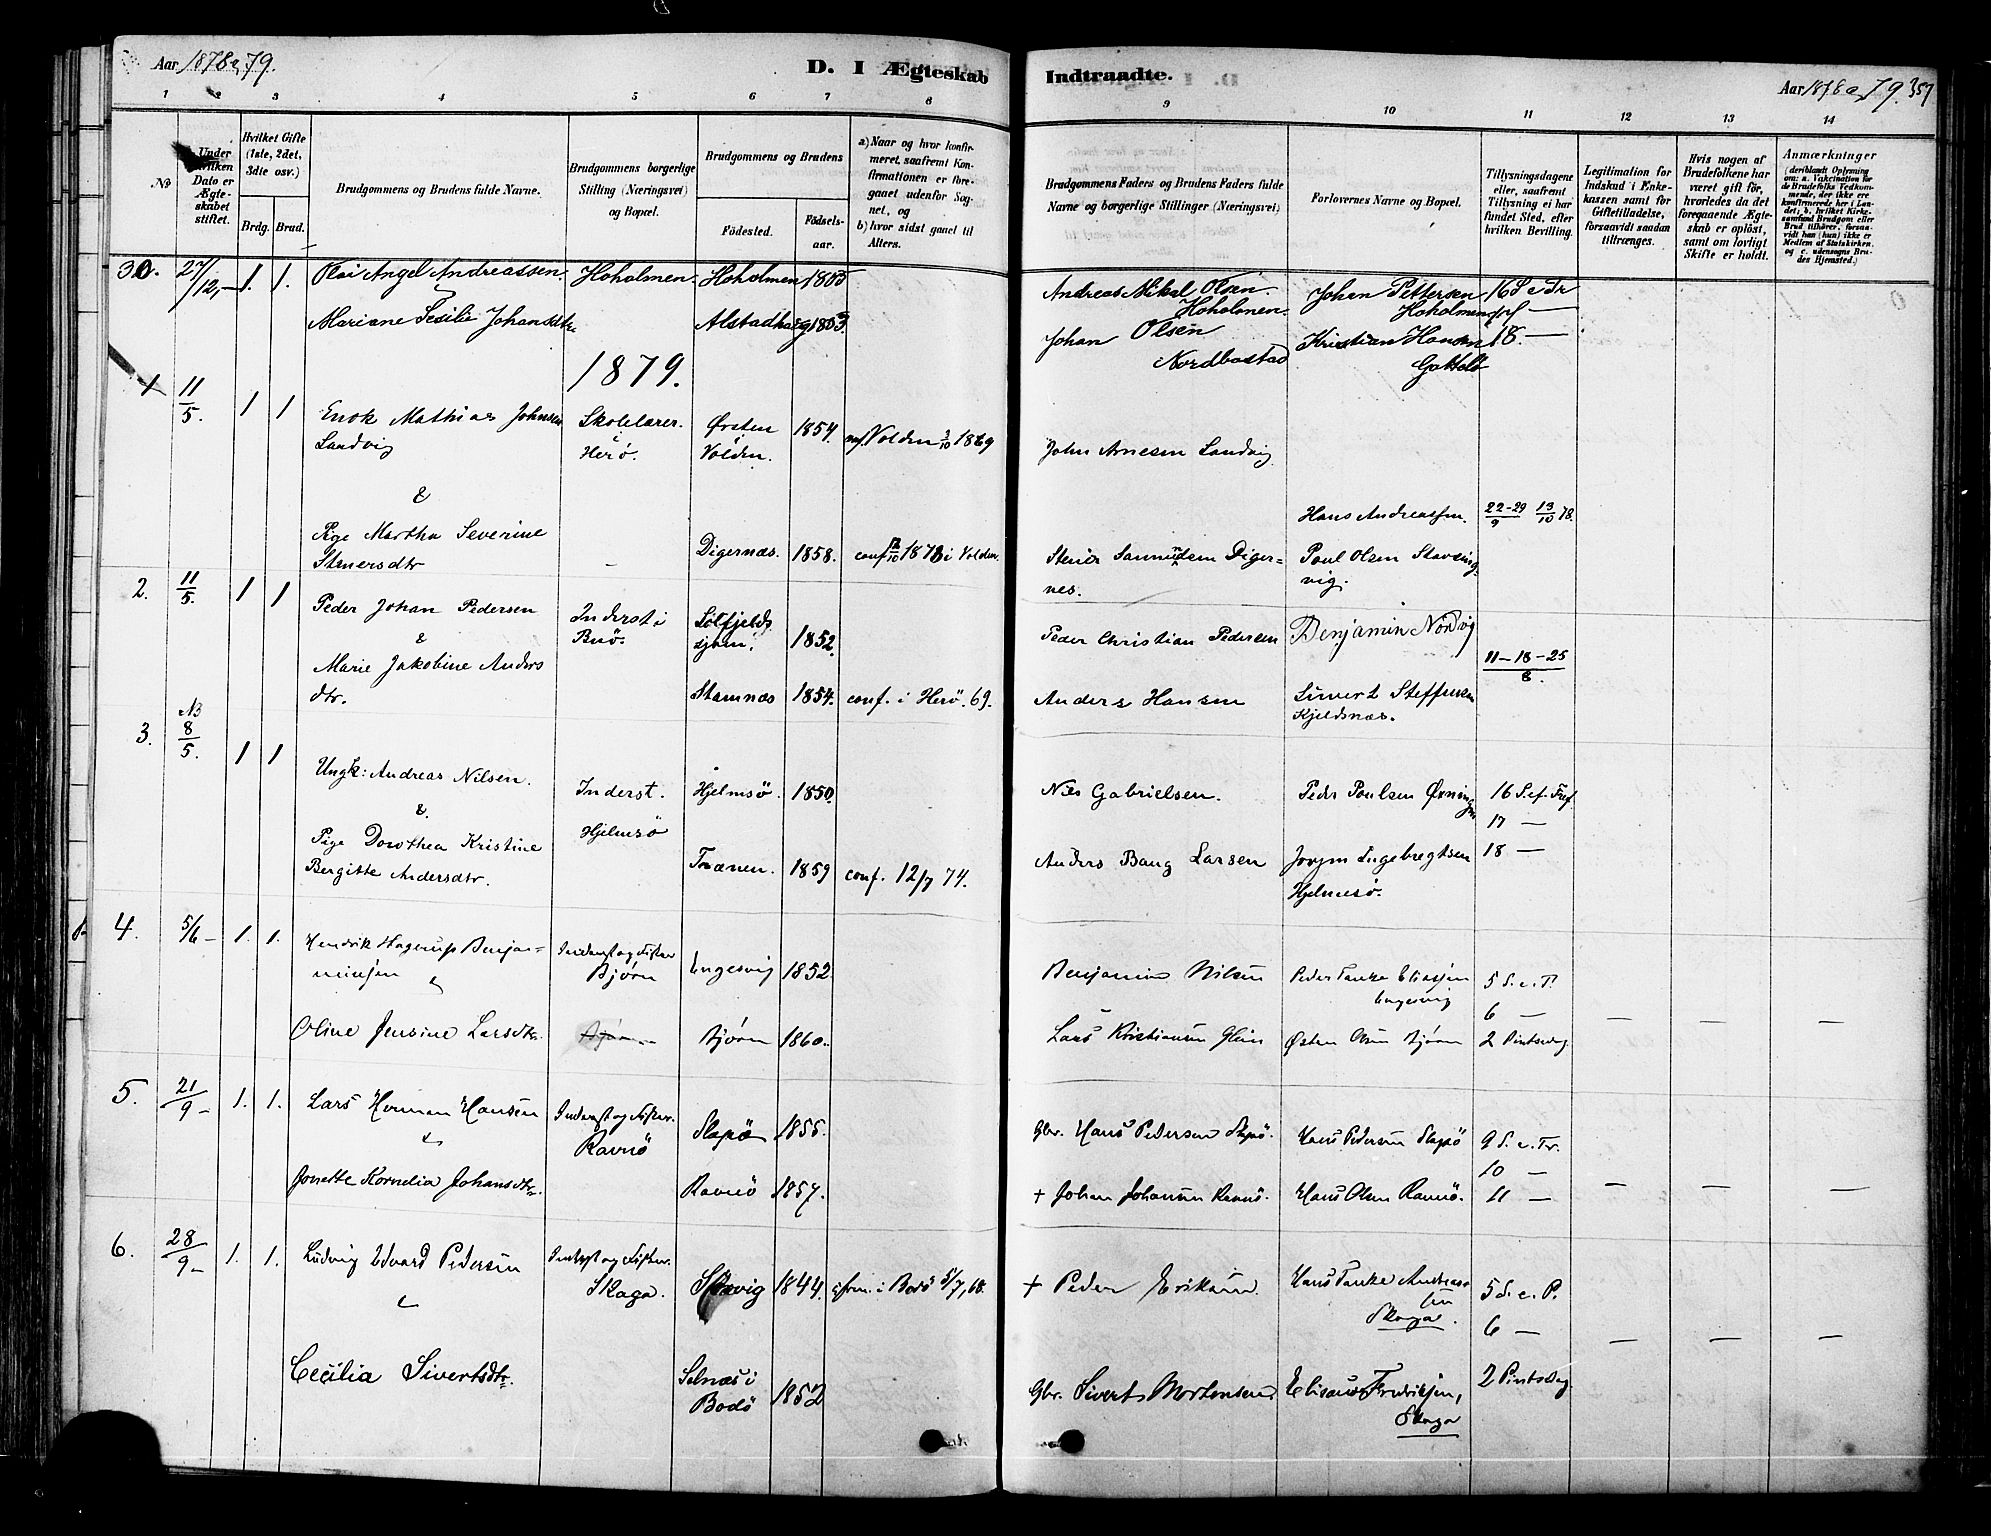 Aar 1878 og 79.
D. I Ægteskab
Indtraadte.
Aar 1878 og 79. 357
1 2 3 4 5 6 7 8 9 10 11 12 13 14
No
Under hvilken Dato er Ægteskabet stiftet.
Hvilket Gifte (1ste, 2det, 3die osv.)
Brdg. Brud.
Brudgommens og Brudens fulde Navne.
Brudgommens borgerlige Stilling (Næringsvei) og Bopæl.
Brudgommens og Brudens
Fødested.
Fødselsaar.
a) Naar og hvor konfirmeret, saafremt Konfirmationen er foregaaet udenfor Sognet, og
b) hvor sidst gaaet til Alters.
Brudgommens Faders og Brudens Faders fulde Navne og borgerlige Stillinger (Næringsvei)
Forlovernes Navne og Bopæl.
Tillysningsdagene eller, saafremt Tillysning ei har fundet Sted, efter hvilken Bevilling.
Legitimation for Indskud i Enkekassen samt for Giftetilladelse, forsaavidt saadan tiltrænges.
Hvis nogen af Brudefolkene har været gift før, hvorledes da det foregaaende Ægteskab er opløst, samt om lovligt Skifte er holdt.
Anmærkninger
(deriblandt Oplysning om: a. Vakcination for de Brudefolks Vedkommende, der ikke ere konfirmerede her i Landet; b. hvilket Kirkesamfund Brudgom eller Brud tilhører, forsaavidt han (hun) ikke er Medlem af Statskirken, og c. udensogns Brudes Hjemsted.)
30. 27/12,- 1. 1. Andreassen. Hoholmen. Hoholmen
Mariane Johansdtr. Alstadhaug
Andreas Mikal Olsen Hoholmen. Johan Pettersen Hoholmen
Johan Olsen Nordbostad Kristian Hansen 18. —
1879.
1 11/5. 1 1 Enok Mathias Johnsen Landvig Skolelærer. Herö. Ørsten Volden. 1854. Volden 3/10 1869
John Arnesen Landvig
&
Hans Andreassen. 22-29/9 13/10 78.
Pige Martha Severine Stenersdtr - Digernæs. 1858. conf 1873 i Volden.
Digernes. Poul Olsen
2. 11/5. 1 1 Peder Johan Pedersen Inderst i 1852.
Peder Christian Pedersen Benjamin Nordvig
& 11-18-25/8.
Marie Jakobine Anders dtr. Stamnæs 1854. conf. i Herö. 69.
Anders Hansen Sivert Steffensen Kjeldsnæs.
3. NB 8/5. 1 1 Ungk: Andreas Nilsen. Inderst. Hjelmsö Hjelmsö. 1850.
Nils Gabrielsen. Peder Poulsen 16 S. ef. Tref
&. 17 —
Pige Dorothea Kristine Bergitte Andersdtr. Trænen. 1859 conf. 12/7 74.
Anders Baug Larsen Ingebregtsen Hjelmesö. 18 —
4. 5/6- 1. 1. Hendrik Hagerup Benjaminsen Inderst og Fisker Bjørn Engesvig 1852.
Benjamin Nilsen Peder Tanke Eliassen Engesvig 5 S. e. T.
& 6 —
Oline Jensine Larsdtr. Bjørn Bjørn 1860.
Lars Kristiansen Østen Olsen Bjørn 2 Pintsedag — — —
5. 21/9- 1. 1. Lars Herman Hansen Inderst og Fisker. Ravnö Slapö 1855.
Gbr. Hans Pedersen Slapö. Hans Pedersen Slapö 9 S. e. Tr.
& 10 —
Jonette Kornelia Johansdtr. Ravnö 1857.
+ Johan Johansen Ravnö. Hans Olsen Ravnö. 11 — — — —
6. 28/9- 1. 1. Ludvig Edvard Pedersen Inderst og Fisker. Skaga. 1844. i Bodö 5/7, 60.
+ Peder Eriksen. Hans Tanke Andreassen Skaga. 5 S. e. P.
& 6 — — — —
Cecilia Sivertsdtr. Selnæs i Bodö 1852
Gbr. Sivert Mortensen Fredriksen, Skaga 2 Pintsedag